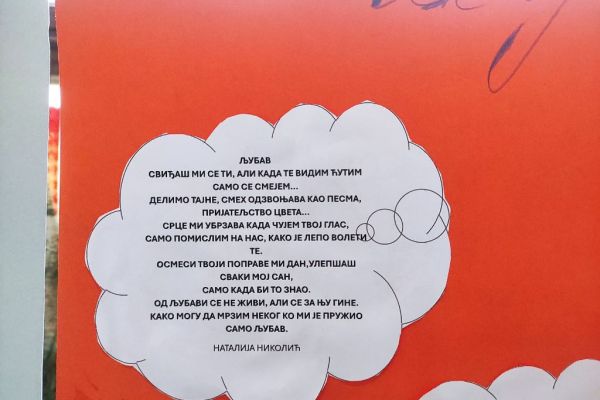 ЉУБАВ
СВИЂАШ МИ СЕ ТИ, АЛИ КАДА ТЕ ВИДИМ ЋУТИМ
САМО СЕ СМЕЈЕМ...
ДЕЛИМО ТАЈНЕ, СМЕХ ОДЗВОЊАВА КАО ПЕСМА,
ПРИЈАТЕЉСТВО ЦВЕТА...
СРЦЕ МИ УБРЗАВА КАДА ЧУЈЕМ ТВОЈ ГЛАС,
САМО ПОМИСЛИМ НА НАС, КАКО ЈЕ ЛЕПО ВОЛЕТИ
ТЕ.
ОСМЕСИ ТВОЈИ ПОПРАВЕ МИ ДАН,УЛЕПШАШ
СВАКИ МОЈ САН,
САМО КАДА БИ ТО ЗНАО.
ОД ЉУБАВИ СЕ НЕ ЖИВИ, АЛИ СЕ ЗА ЊУ ГИНЕ.
КАКО МОГУ ДА МРЗИМ НЕКОГ КО МИ ЈЕ ПРУЖИО
САМО ЉУБАВ.
НАТАЛИЈА НИКОЛИЋ